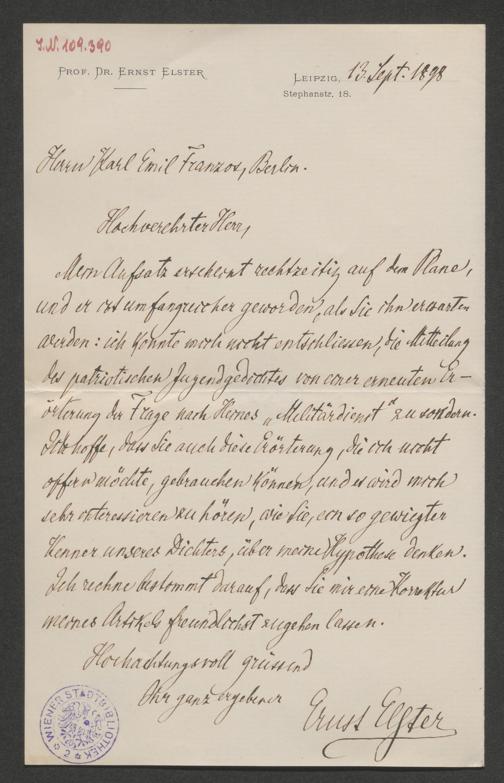 J.N. 109.390
PROF. DR. ERNST ELSTER
LEIPZIG, 13. Sept. 1898
Stephanstr. 18.
Herrn Karl Emil Franzos, Berlin.
Hochverehrter Herr,
Mein Aufsatz erscheint rechtzeitig auf dem Plane,
und er ist umfangreicher geworden, als Sie ihn erwarten
werden: ich konnte mich nicht entschliessen, die Mittheilung
des patriotischen Jugendgedichtes von einer erneuten Er-
örterung der Frage nach Heines „Militärdienst" zu sondern.
Ich hoffe, dass Sie auch diese Erörterung, die ich nicht
opfern möchte, gebrauchen können, und es wird mich
sehr interessieren zu hören, wie Sie, ein so gewiegter
Kenner unseres Dichters, über meine Hypothese denken.
Ich rechne bestimmt darauf, dass Sie mir eine Korrektur
meines Artikels freundlichst zugehen lassen.
Hochachtungsvoll grüssend
Ihr ganz ergebener
Ernst Elster
WIENER STADTBIBLIOTHEK
2